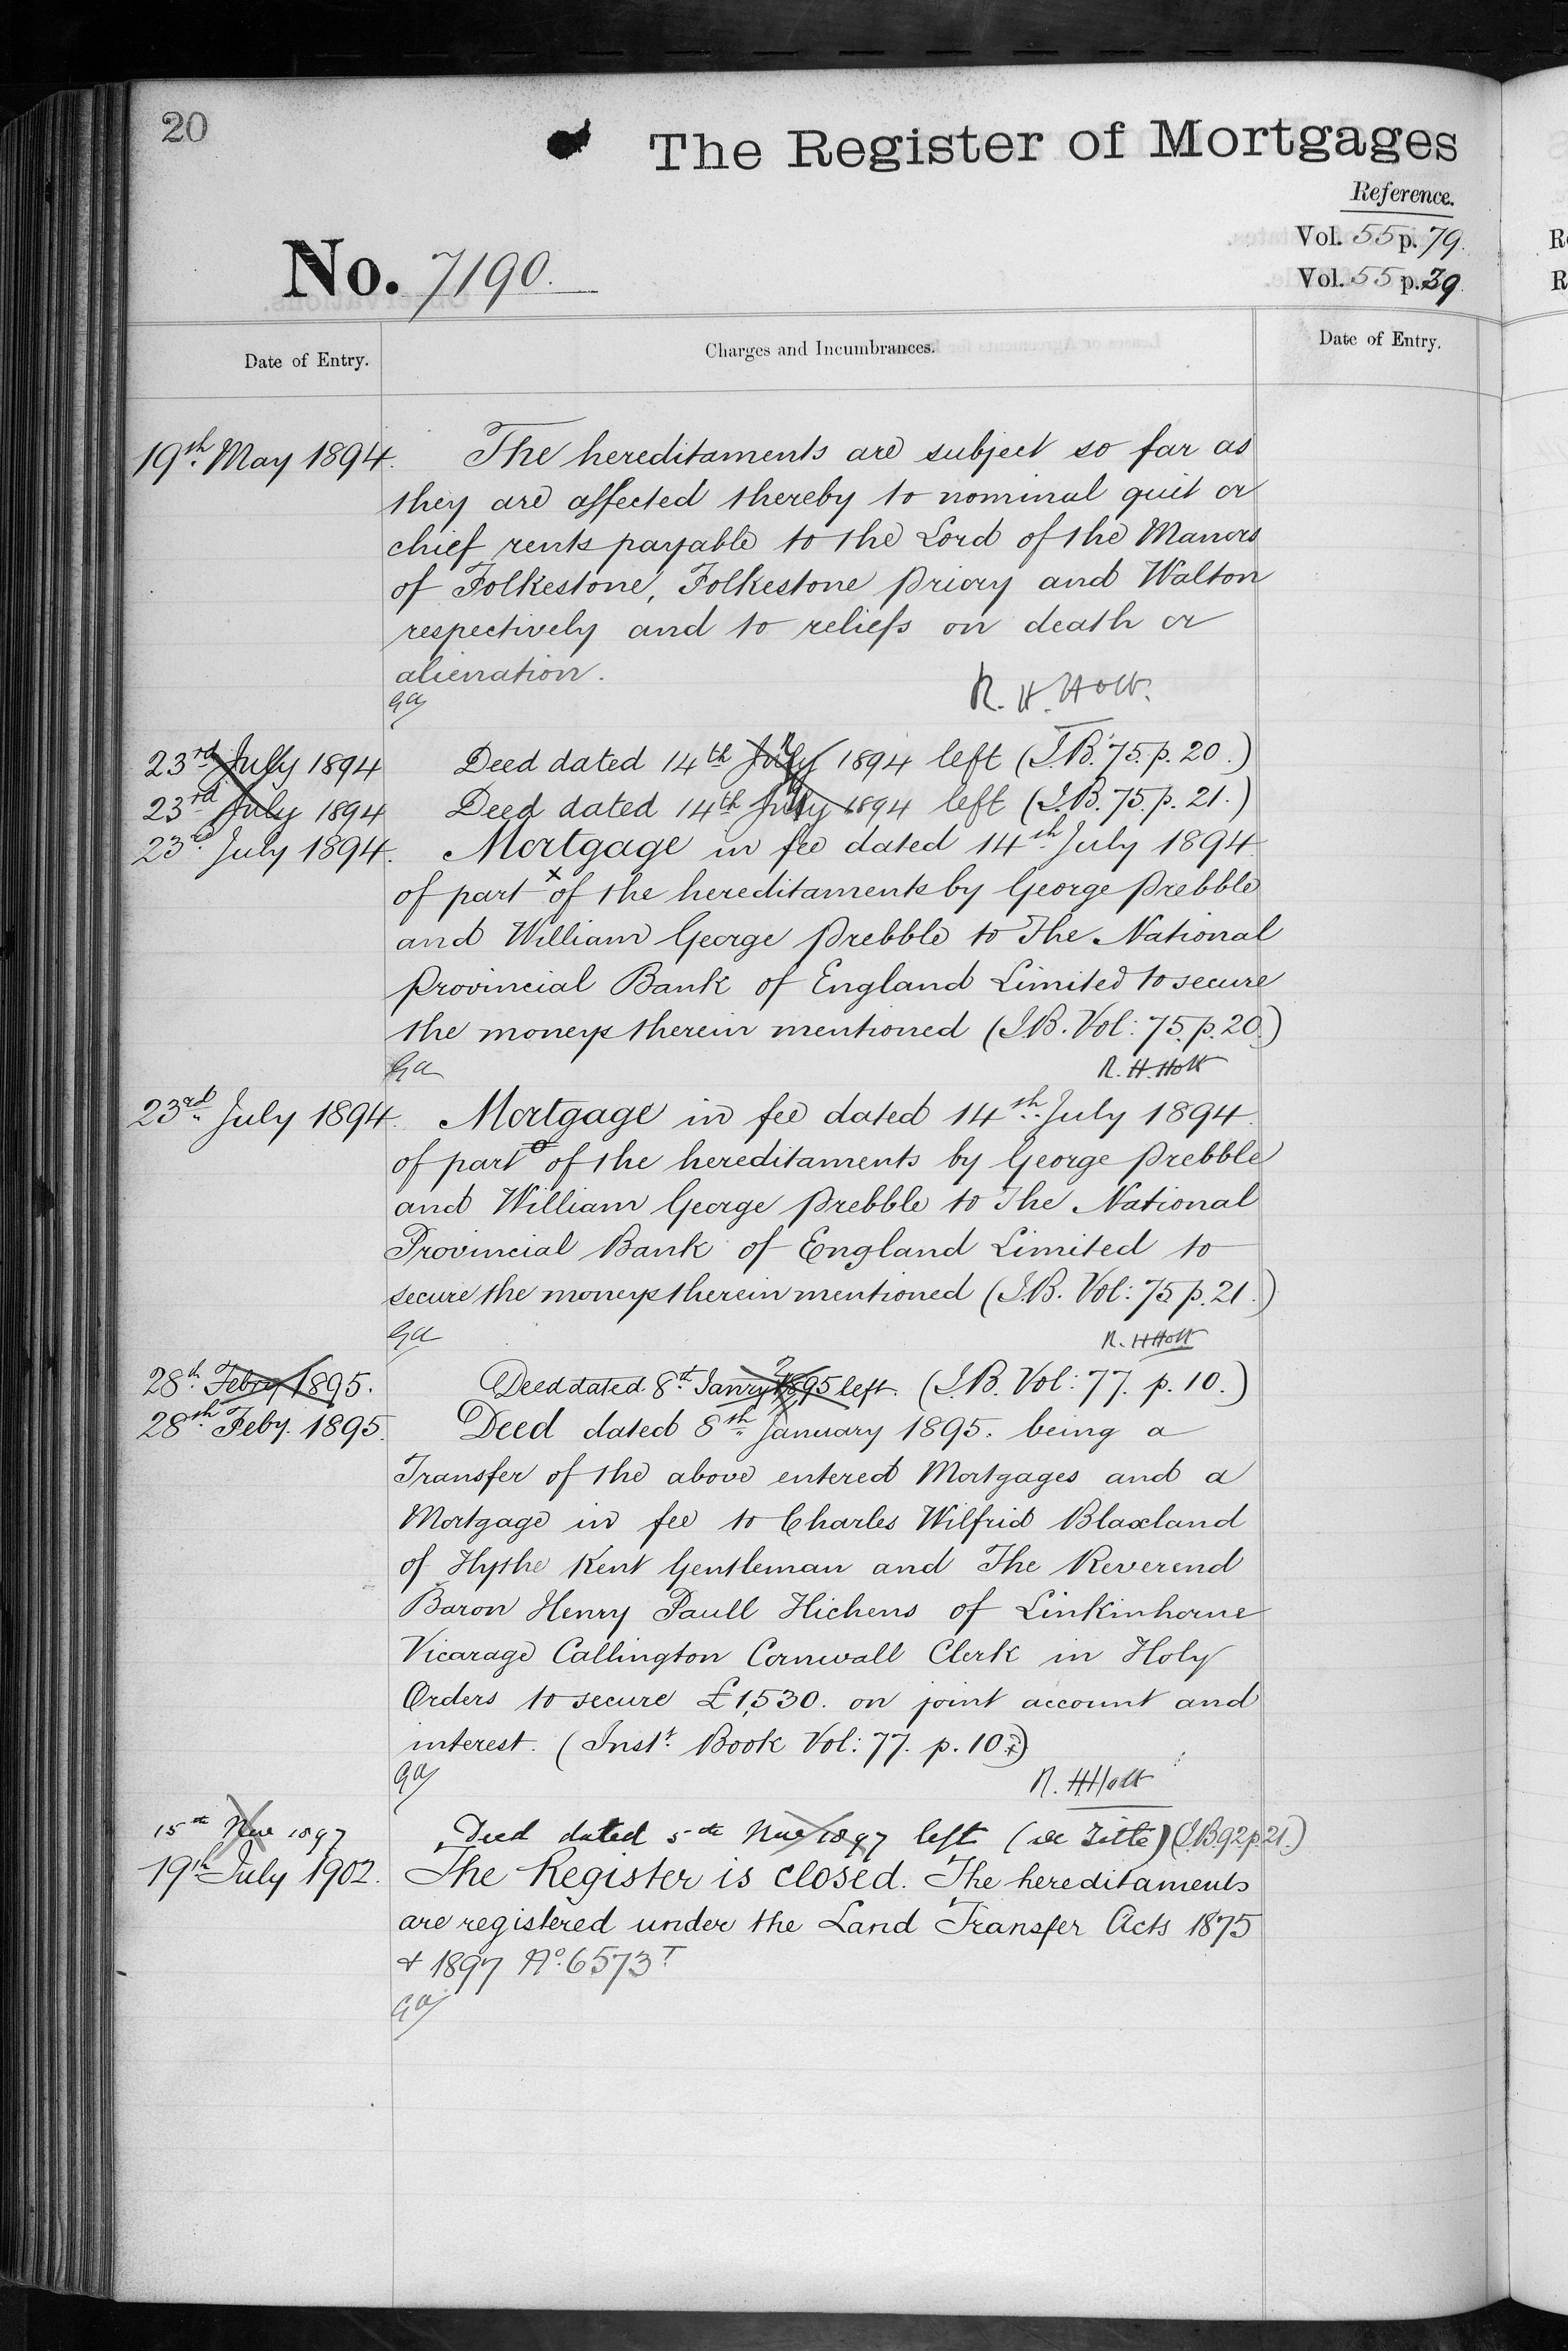 20
The Register of Mortgages
Reference.
Vol. 55 p. 79.
No. 7190.
Vol. 55 p. 39.
Date of Entry.
Charges and Incumbrances.
Date of Entry.
19th May 1894. The hereditaments are subject so far as
they are affected thereby to nominal quit or
chief rents payable to the Lord of the Manors
of Folkestone, Folkestone Priory and Walton
respectively and to reliefs on death or
alienation.
R. H. Holt.
23rd July 1894 Deed dated 14th July 1894 left (I.B. 75. p. 20.)
23rd July 1894 Deed dated 14th July 1894 left (I.B. 75. p. 21.)
23rd July 1894. Mortgage in fee dated 14th July 1894
of part x of the hereditaments by George Prebble
and William George Prebble to The National
Provincial Bank of England Limited to secure
the moneys therein mentioned (I.B. Vol: 75. p. 20.)
Ga R. H. Holt
23rd July 1894. Mortgage in fee dated 14th July 1894.
of part o of the hereditaments by George Prebble
and William George Prebble to The National
Provincial Bank of England Limited to
secure the moneys therein mentioned (I.B. Vol: 75 p. 21.)
Ga R. H Holt
28th Febry 1895. Deed dated 8th Janry 1895 left. (I.B. Vol: 77. p. 10.)
28th Feby. 1895. Deed dated 8th January 1895. being a
Transfer of the above entered Mortgages and a
Mortgage in fee to Charles Wilfrid Blaxland
of Hythe Kent Gentleman and The Reverend
Baron Henry Paull Hichens of Linkinhorne
Vicarage Callington Cornwall Clerk in Holy
Orders to secure £1,530. on joint account and
interest. (Instt. Book Vol: 77. p. 10.)
Ga R. H Holt
15th Nov 1897 Deed dated 5th Nov 1897 left (see Title) (I.B. 92 p. 21.)
19th July 1902. The Register is closed. The hereditaments
are registered under the Land Transfer Acts 1875
& 1897 No. 6573T
Ga